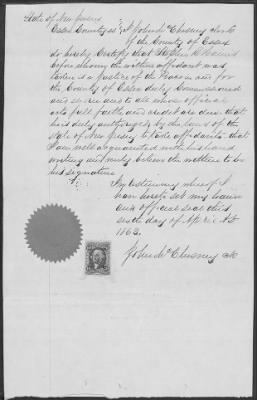 State of New Jersey
Essex County ss I, John McChesney clerk
of the County of Essex
do hereby Certify that Stephen
before whom the within affidavit was
taken is a Justice of the Peace in and for
the County of Essex duly Commissioned
and sworn and to all whose official
acts full faith and credit are due that
he is duly authorized by the laws of the
State of New Jersey to take affidavits that
I am well acquainted with his hand
writing and verily believe the within to be
his signature
In testimony whereof I
have hereto set my hand
and official seal this
sixth day of April AD
1863.
John McChesney clk